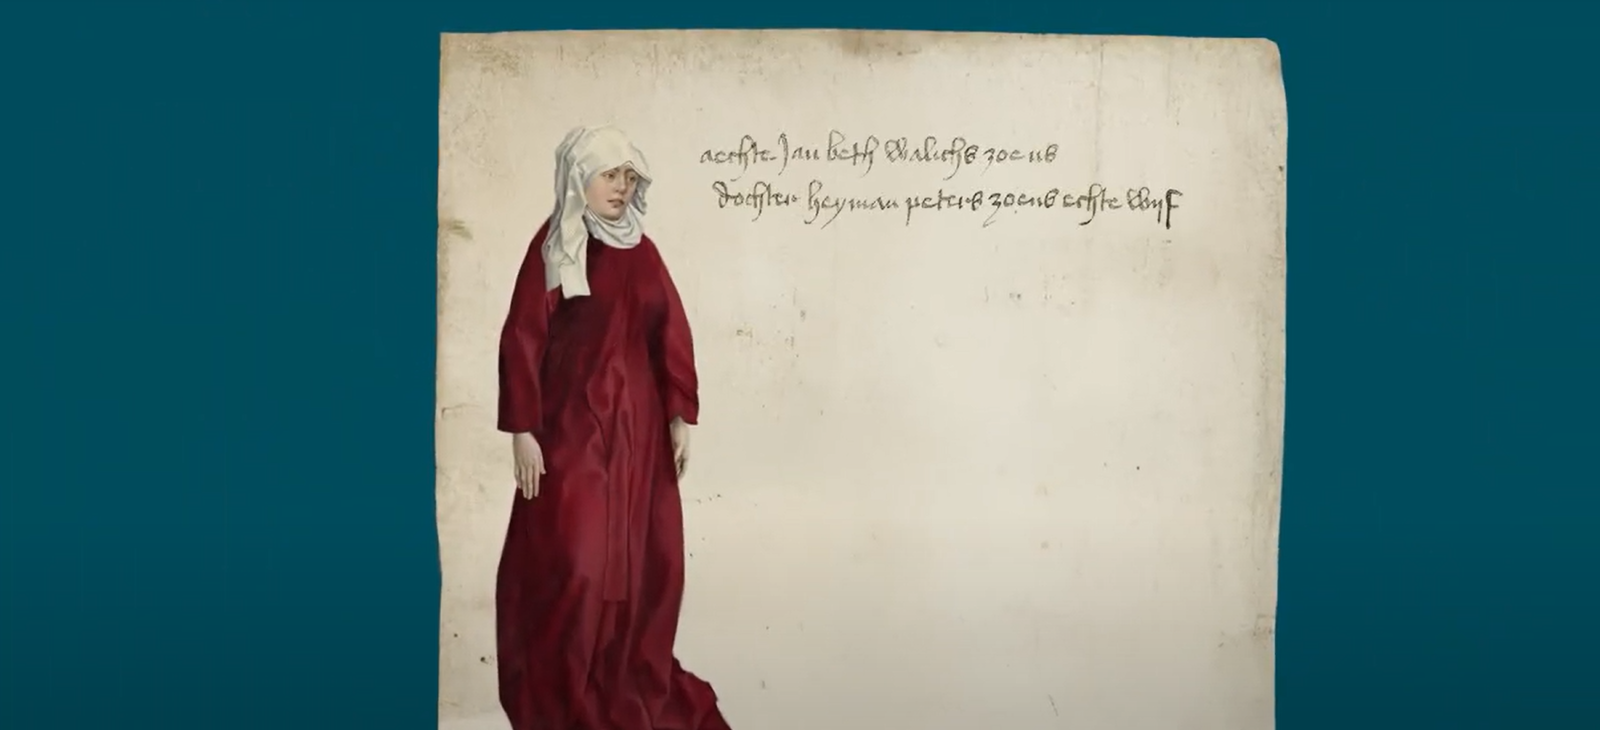 aechte Jan beth walichs zoens
dochter heyman peters zoens echte wijf